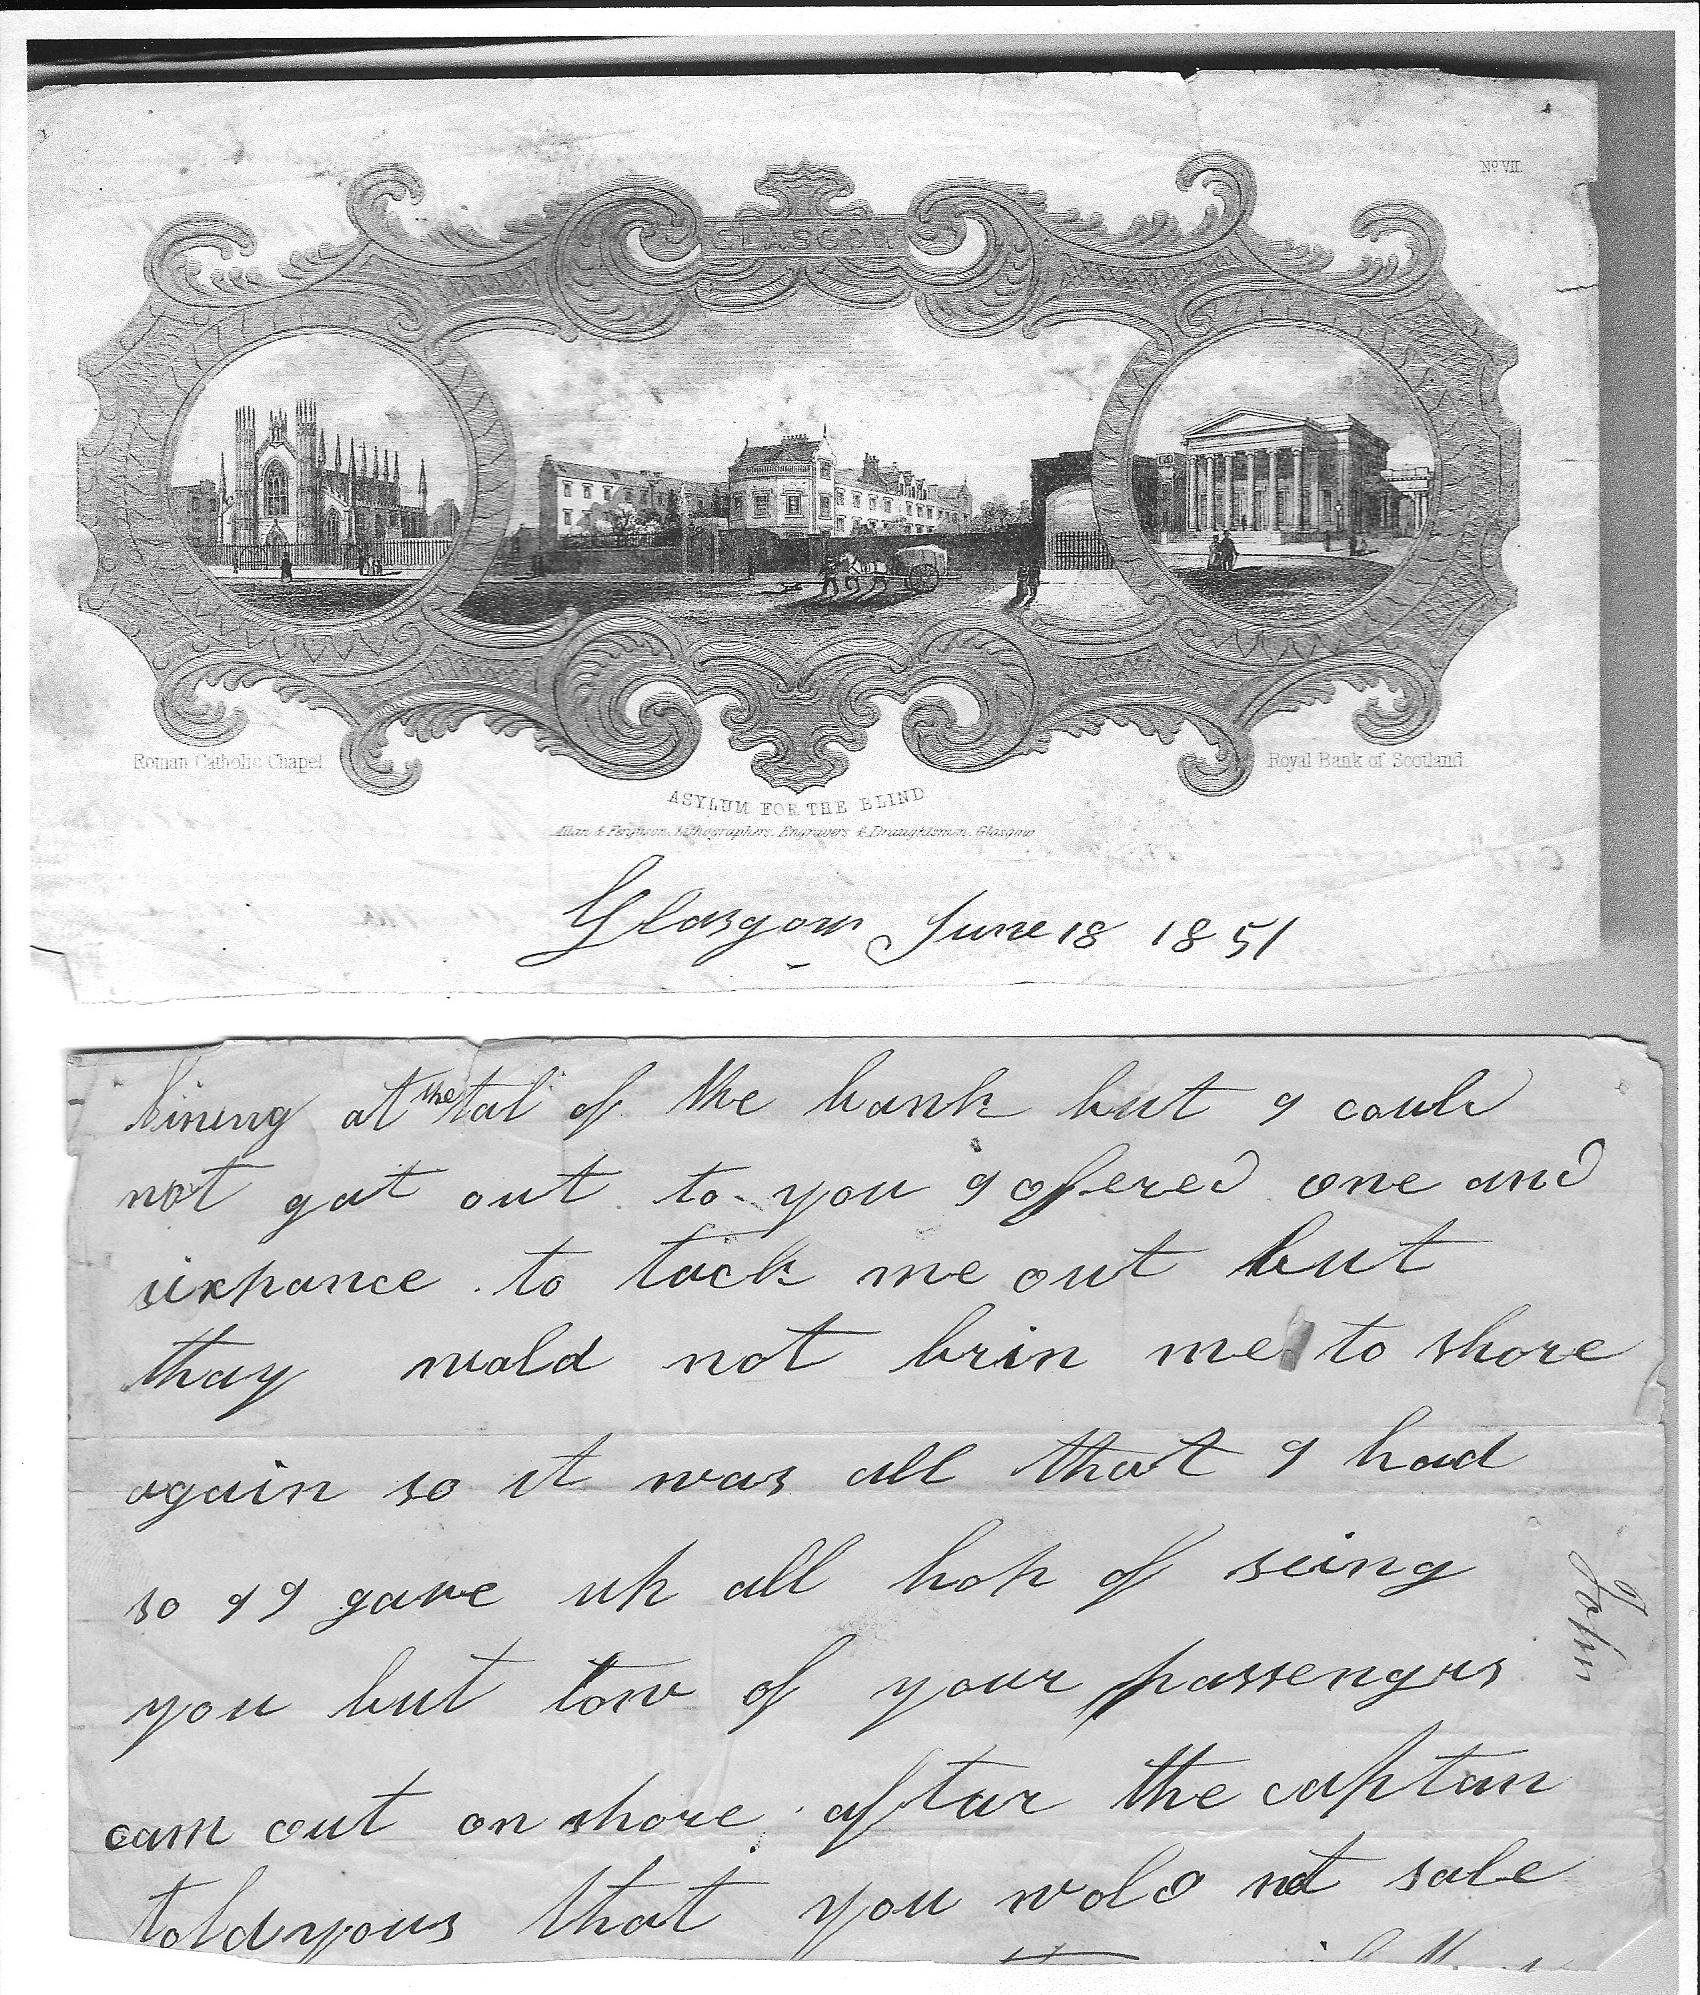 No VII.
GLASGOW
Roman Catholic Chapel
Royal Bank of Scotland
ASYLUM FOR THE BLIND
Allan & Ferguson, Lithographers, Engravers & Draughtsmen, Glasgow
Glasgow June 18 1851
at the tal of the bank but I could
not gat out to you I offered one and
sixpance to tack me out but
thay wold not brin me to shore
again so it was all that I had
so I I gave up all hop of seing
you but tow of your passengrs
cam out on shore aftar the captan
told yous that you wold not sale
John